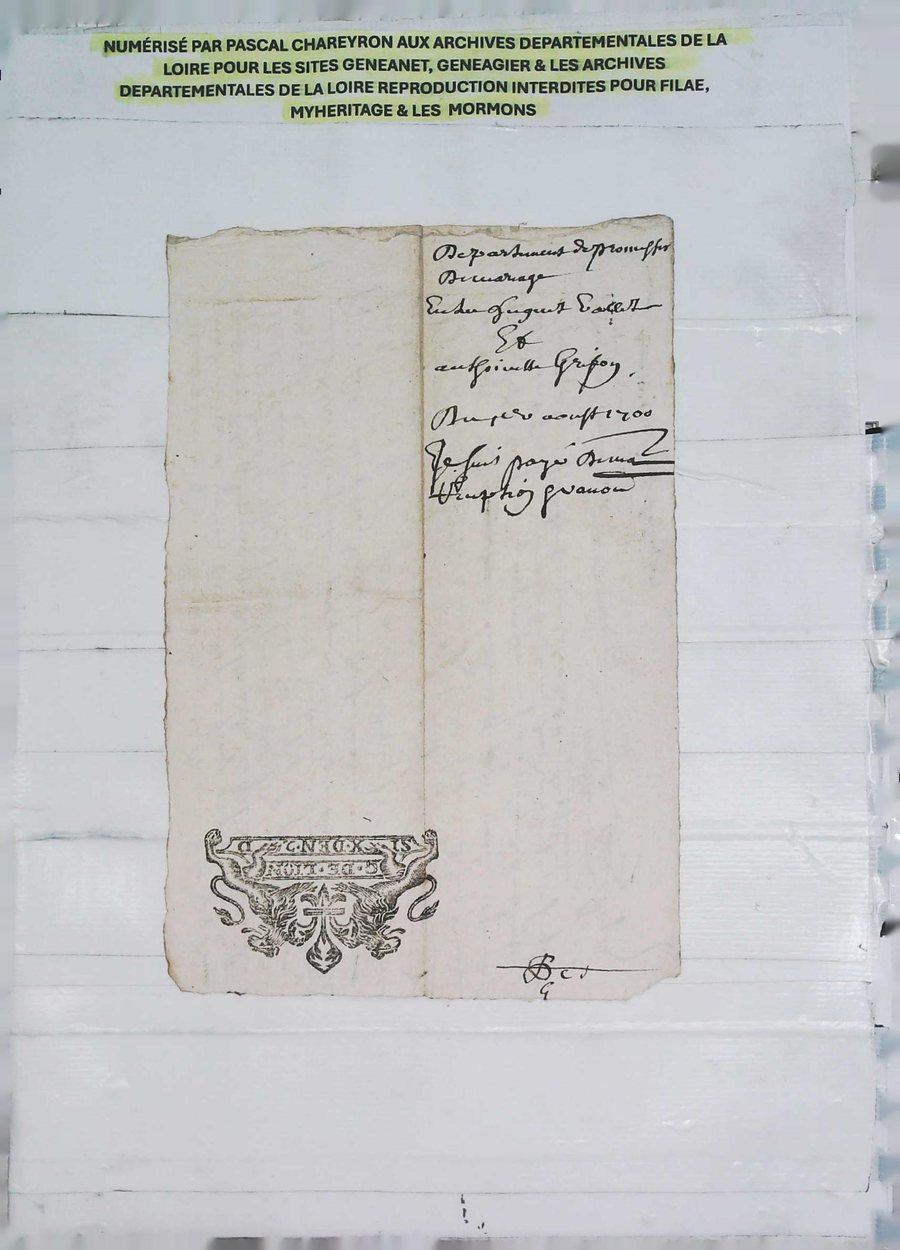 NUMÉRISÉ PAR PASCAL CHAREYRON AUX ARCHIVES DEPARTEMENTALES DE LA
LOIRE POUR LES SITES GENEANET, GENEAGIER & LES ARCHIVES
DEPARTEMENTALES DE LA LOIRE REPRODUCTION INTERDITES POUR FILAE,
MYHERITAGE & LES MORMONS
Departement de promesses
De mariage
Entre huguet
Et
anthoinette Grifon
Du aoust 1700
Je suis payé De ma
G DE LION
SIX DEN